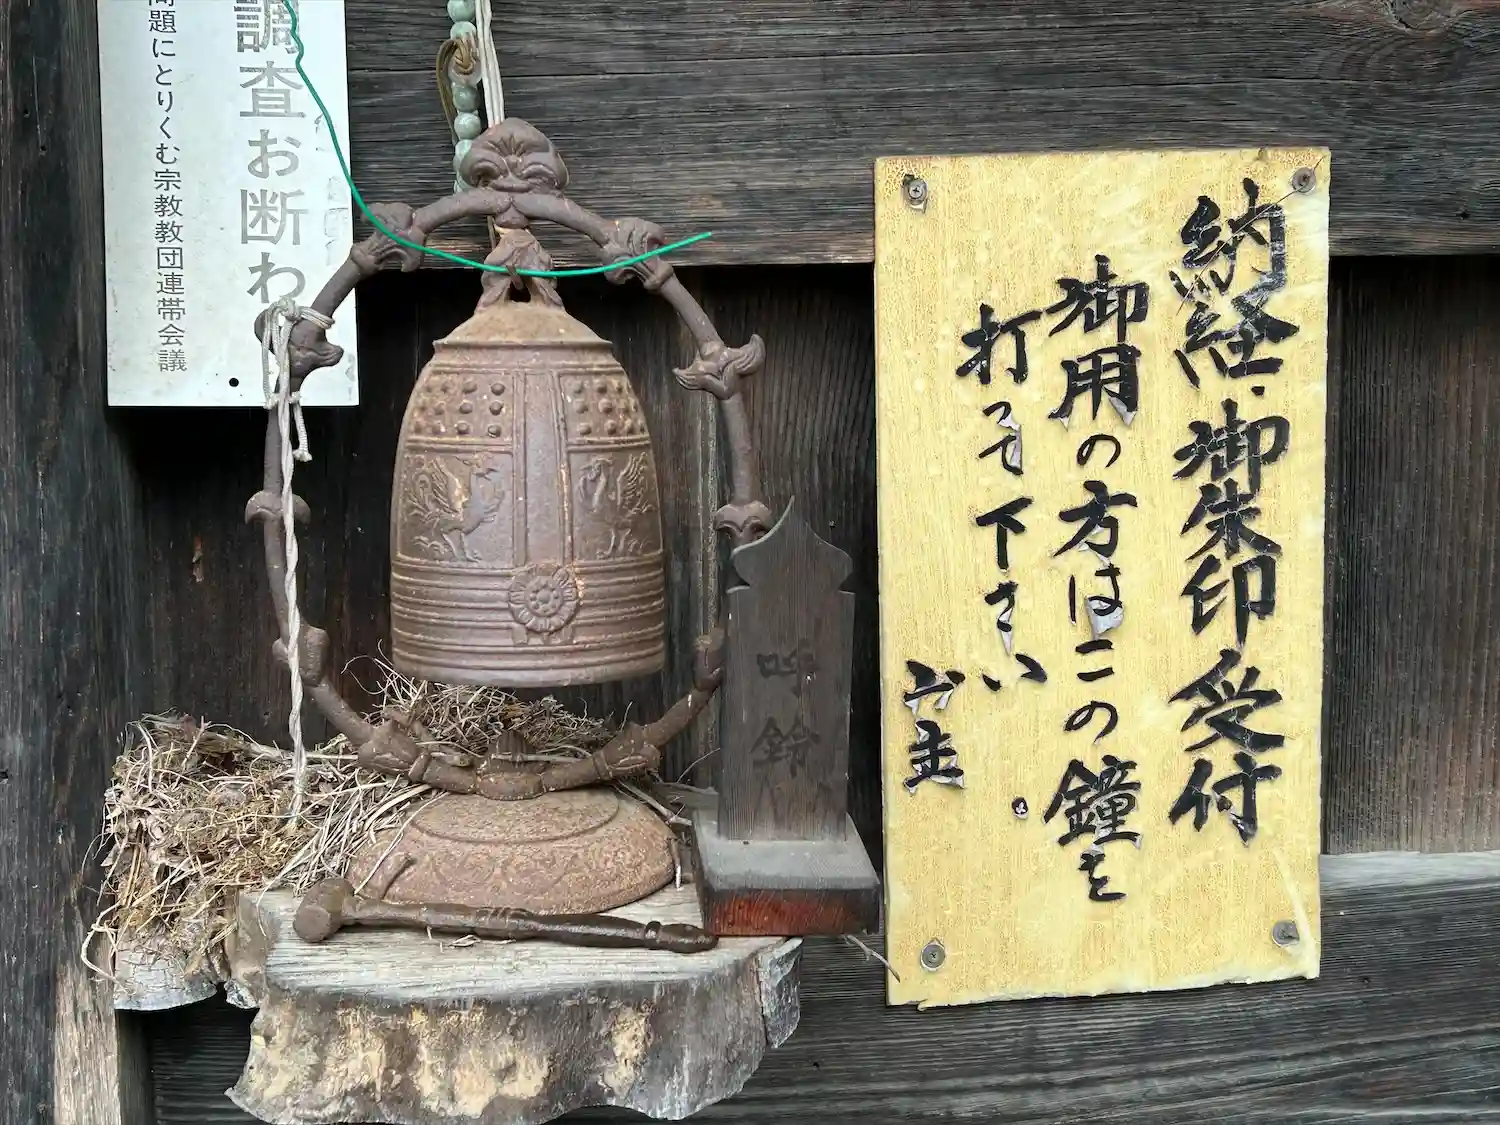 納経・御朱印受付
御用の方はこの鐘を
打って下さい
山主
呼鈴
調査お断わ
問題にとりくむ宗教教団連帯会議